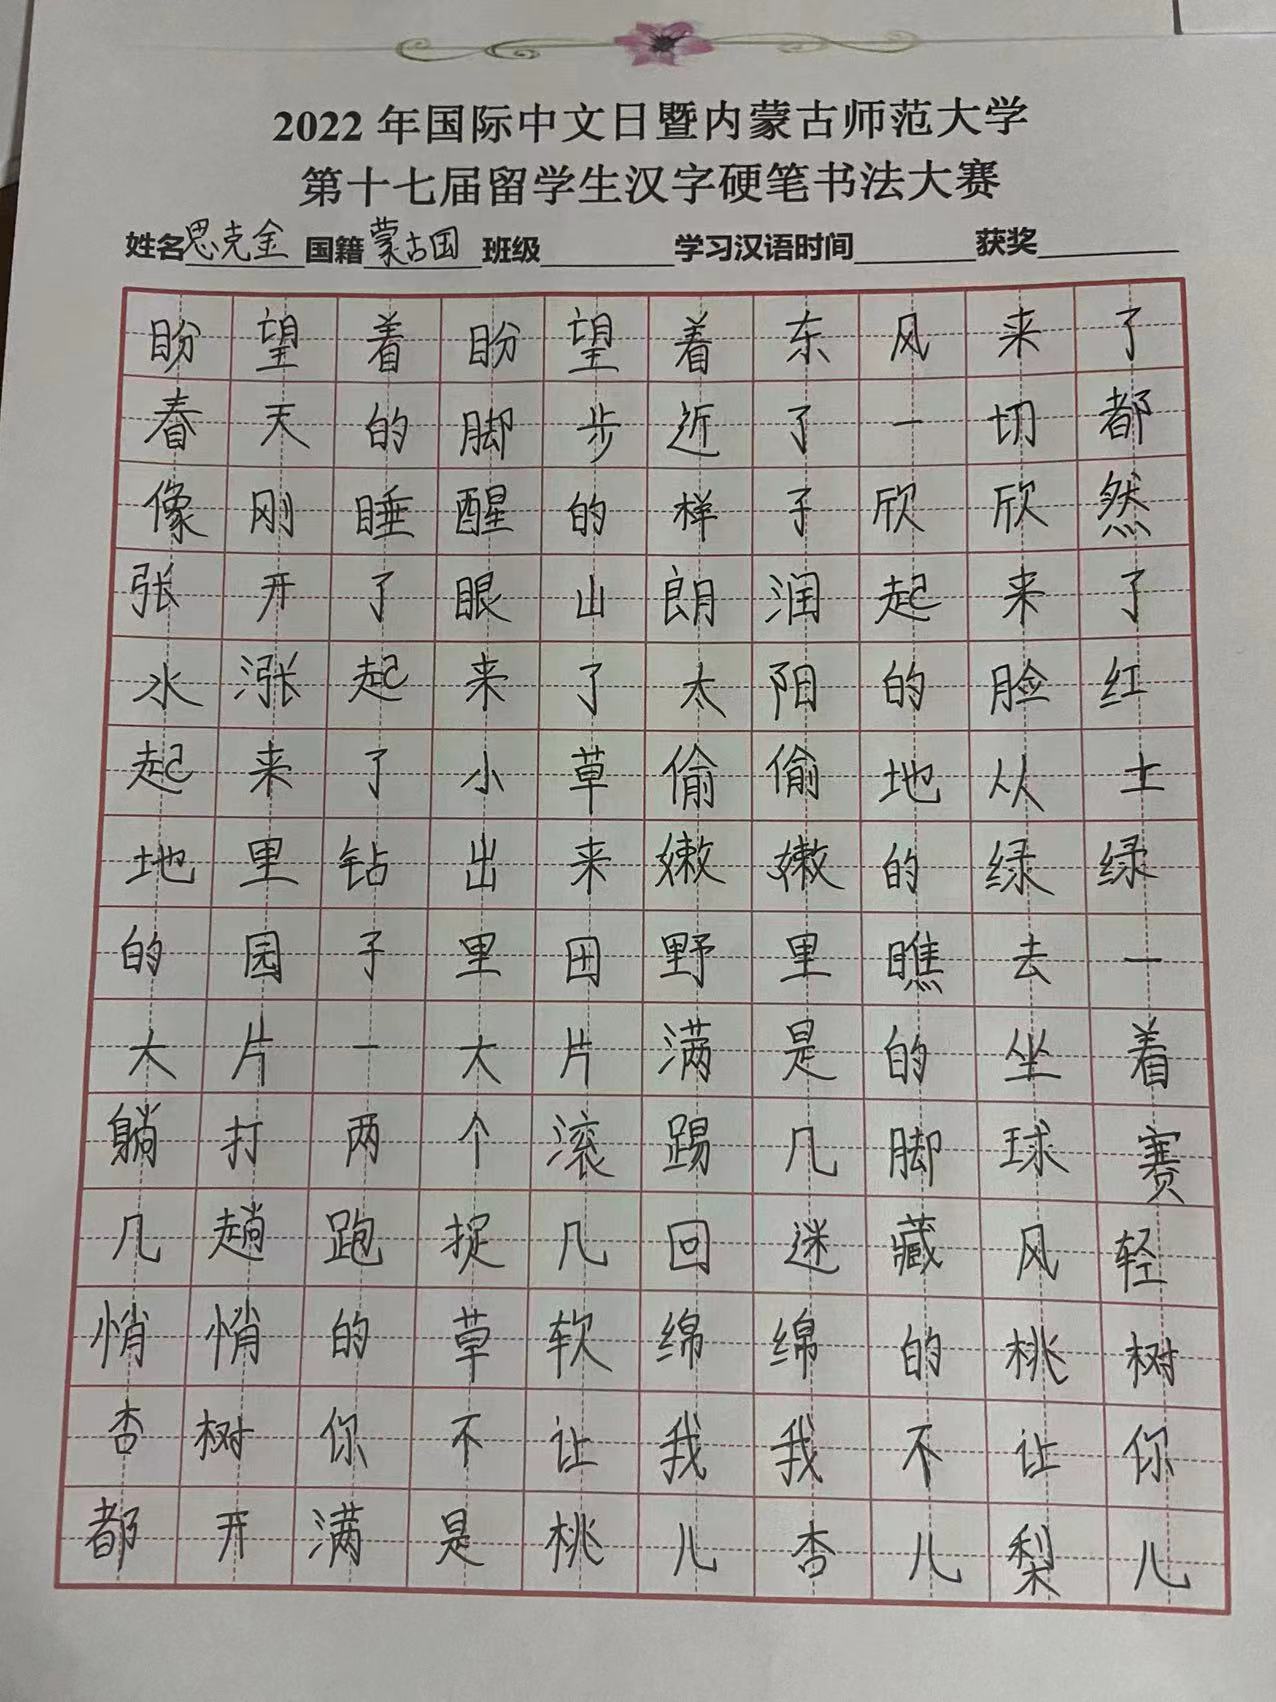 2022 年国际中文日暨内蒙古师范大学
第十七届留学生汉字硬笔书法大赛
姓名思克金国籍蒙古国班级 学习汉语时间 获奖
盼望着盼望着东风来了
春天的脚步近了一切都
像刚睡醒的样子欣欣然
张开了眼山朗润起来了
水涨起来了太阳的脸红
起来了小草偷偷地从土
地里钻出来嫩嫩的绿绿
的园子里田野里瞧去一
大片一大片满是的坐着
躺打两个滚踢几脚球赛
几趟跑捉几回迷藏风轻
悄悄的草软绵绵的桃树
杏树你不让我我不让你
都开满是桃儿杏儿梨儿